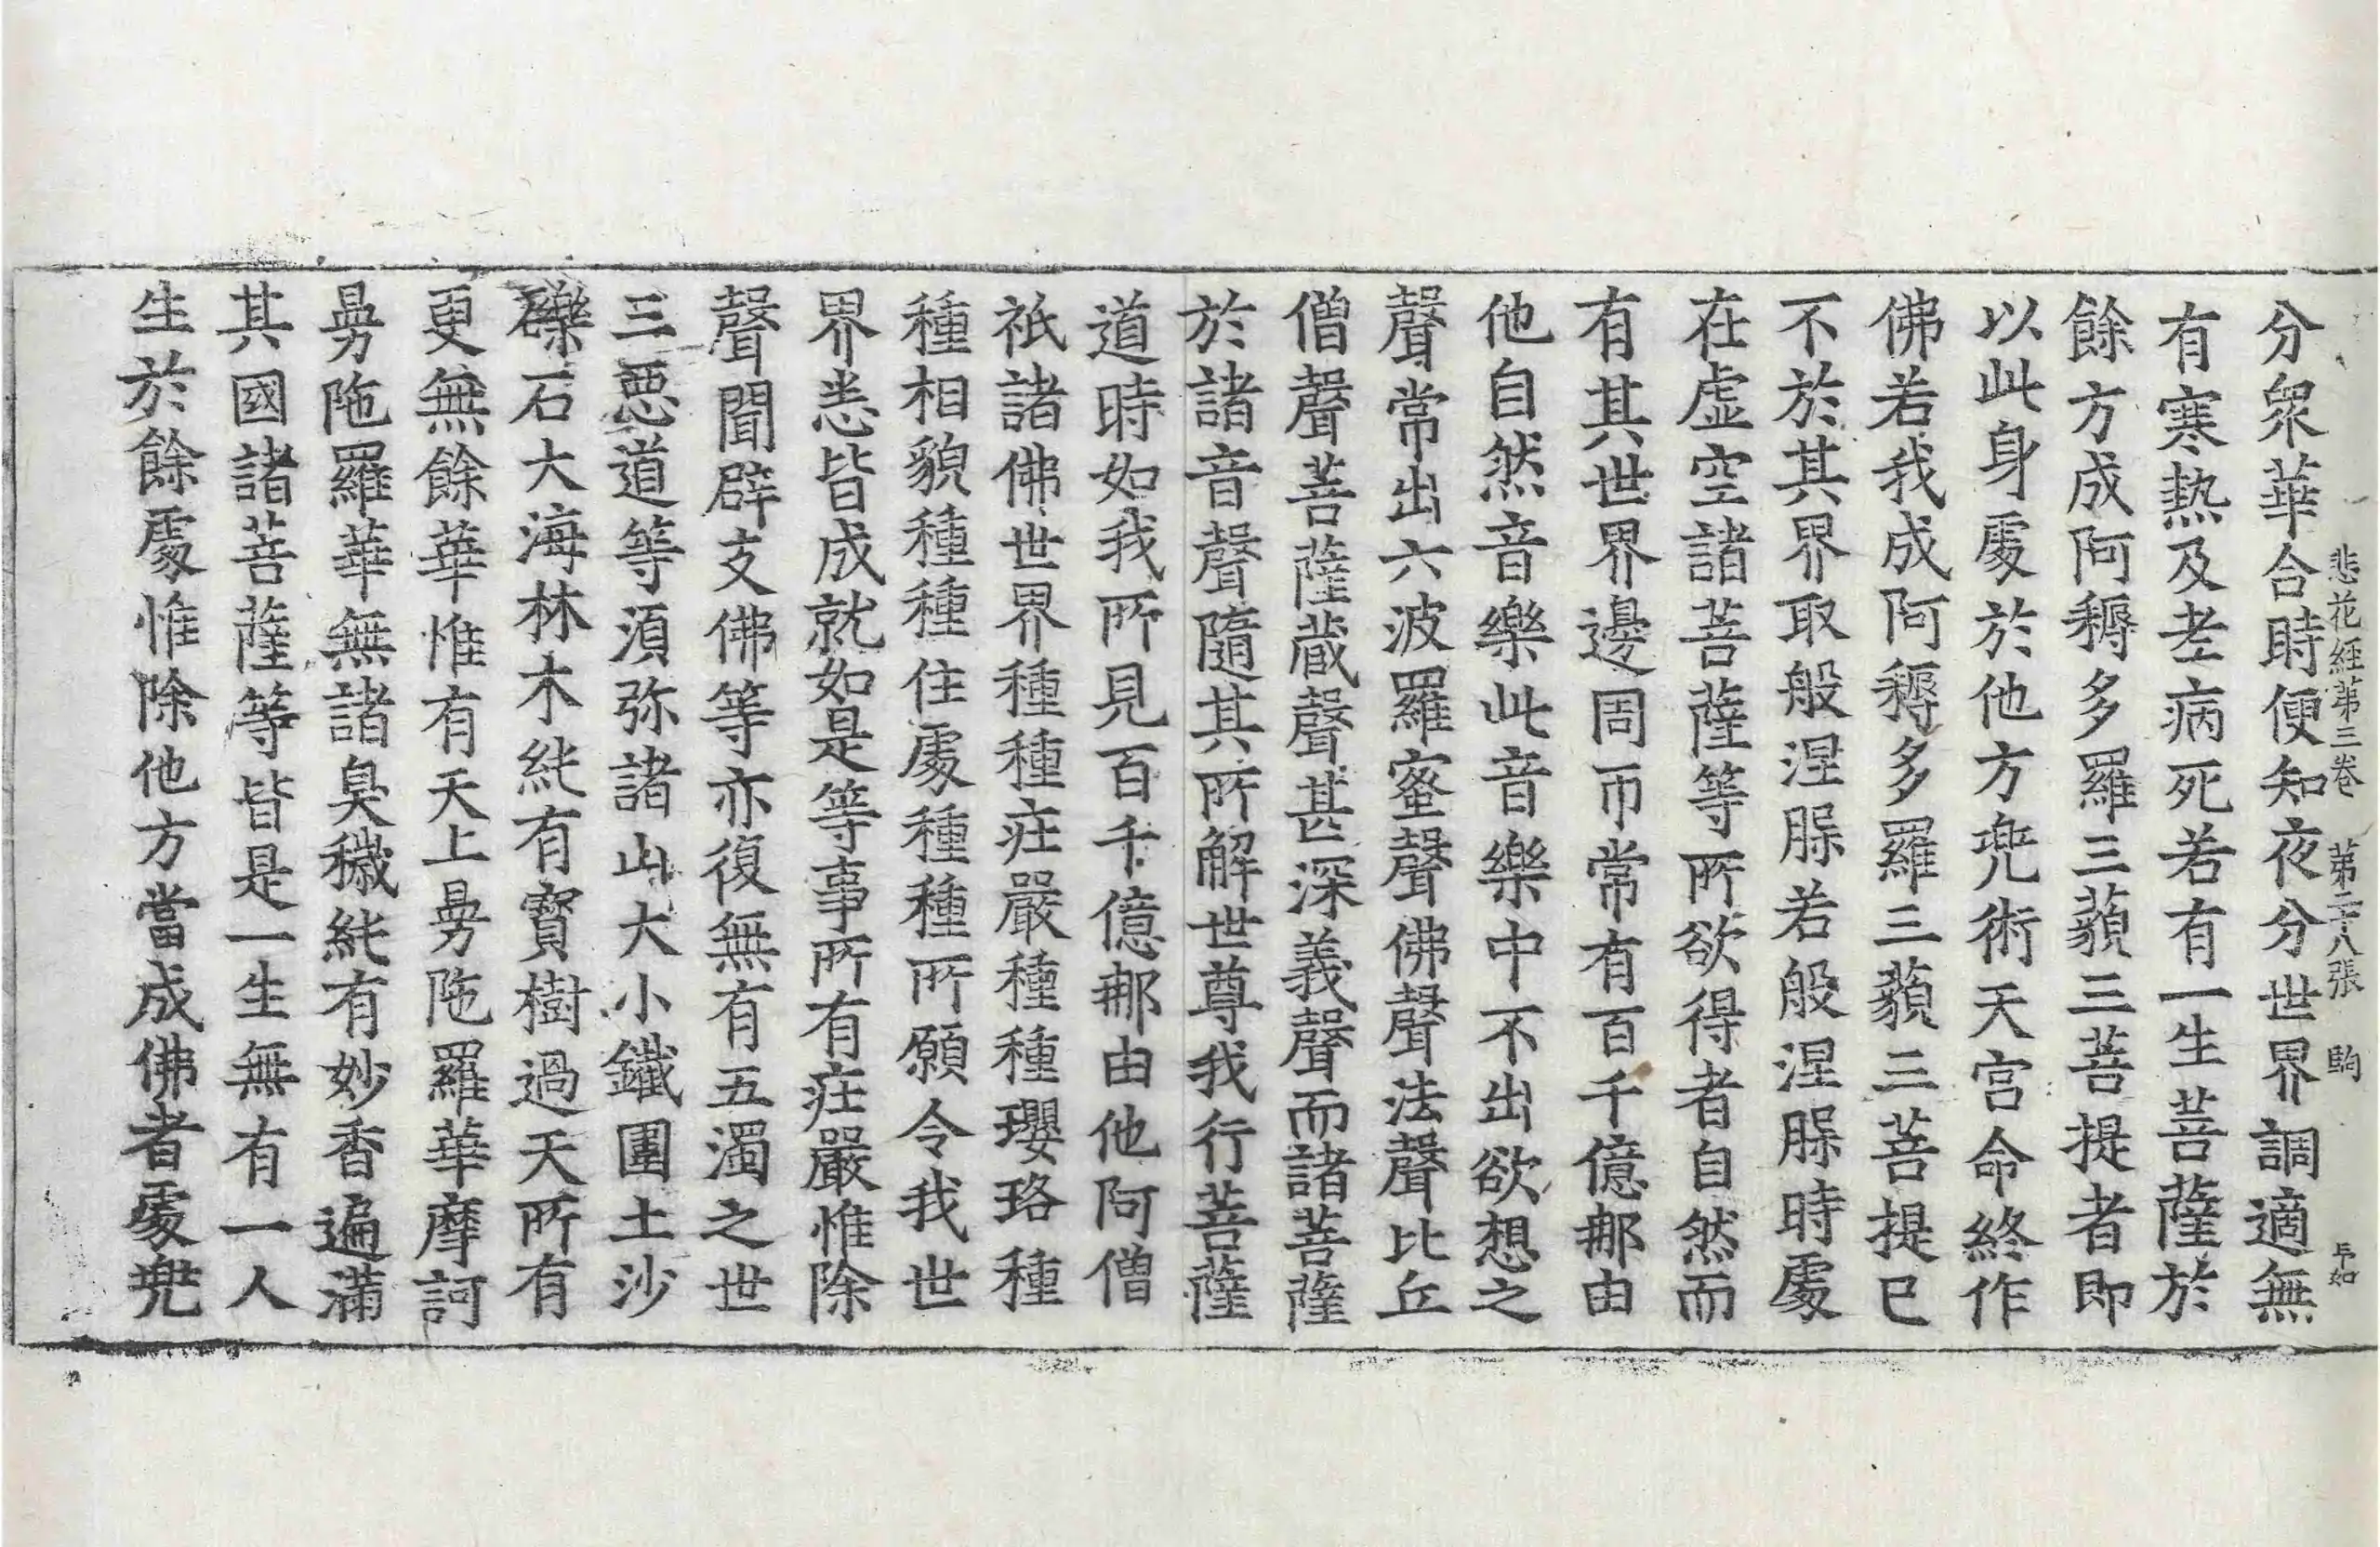 悲花經第三卷 第二十八張 駒
分衆華合時便知夜分世界調適無
有寒熱及老病死若有一生菩薩於
餘方成阿耨多羅三藐三菩提者即
以此身處於他方兜術天宮命終作
佛若我成阿耨多羅三藐三菩提已
不於其界取般涅槃若般涅槃時處
在虛空諸菩薩等所欲得者自然而
有其世界邊周帀常有百千億那由
他自然音樂此音樂中不出欲想之
聲常出六波羅蜜聲佛聲法聲比丘
僧聲菩薩蔵聲甚深義聲而諸菩薩
於諸音聲隨其所解世尊我行菩薩
道時如我所見百千億那由他阿僧
祇諸佛世界種種莊嚴種種瓔珞種
種相貌種種住處種種所願令我世
界悉皆成就如是等事所有莊嚴惟除
聲聞辟支佛等亦復無有五濁之世
三惡道等須弥諸山大小鐵圍土沙
礫石大海林木純有寶樹過天所有
更無餘華惟有天上曼陁羅華摩訶
曼陁羅華無諸臭穢純有妙香遍滿
其國諸菩薩等皆是一生無有一人
生於餘處惟除他方當成佛者處兜